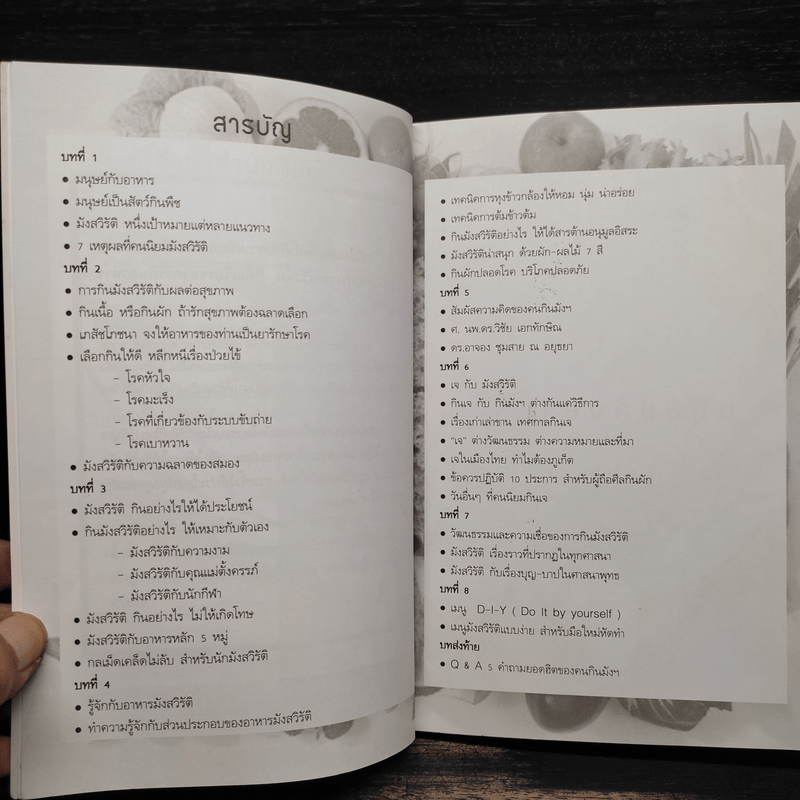 สารบัญ
บทที่ 1
• มนุษย์กับอาหาร
• มนุษย์เป็นสัตว์กินพืช
• มังสวิรัติ หนึ่งเป้าหมายแต่หลายแนวทาง
• 7 เหตุผลที่คนนิยมมังสวิรัติ
บทที่ 2
• การกินมังสวิรัติกับผลต่อสุขภาพ
• กินเนื้อ หรือกินผัก ถ้ารักสุขภาพต้องฉลาดเลือก
• เภสัชโภชนา จงให้อาหารของท่านเป็นยารักษาโรค
• เลือกกินให้ดี หลีกหนีเรื่องป่วยไข้
– โรคหัวใจ
– โรคมะเร็ง
– โรคที่เกี่ยวข้องกับระบบขับถ่าย
– โรคเบาหวาน
• มังสวิรัติกับความฉลาดของสมอง
บทที่ 3
• มังสวิรัติ กินอย่างไรให้ได้ประโยชน์
• กินมังสวิรัติอย่างไร ให้เหมาะกับตัวเอง
– มังสวิรัติกับความงาม
– มังสวิรัติกับคุณแม่ตั้งครรภ์
– มังสวิรัติกับนักกีฬา
• มังสวิรัติ กินอย่างไร ไม่ให้เกิดโทษ
• มังสวิรัติกับอาหารหลัก 5 หมู่
• กลเม็ดเคล็ดไม่ลับ สำหรับนักมังสวิรัติ
บทที่ 4
• รู้จักกับอาหารมังสวิรัติ
• ทำความรู้จักกับส่วนประกอบของอาหารมังสวิรัติ
• เทคนิคการหุงข้าวกล้องให้หอม นุ่ม น่าอร่อย
• เทคนิคการต้มข้าวต้ม
• กินมังสวิรัติอย่างไร ให้ได้สารต้านอนุมูลอิสระ
• มังสวิรัติน่าสนุก ด้วยผัก-ผลไม้ 7 สี
• กินผักปลอดโรค บริโภคปลอดภัย
บทที่ 5
• สัมผัสความคิดของคนกินมังฯ
• ศ. นพ.ดร.วิชัย เอกทักษิณ
• ดร.อาจอง ชุมสาย ณ อยุธยา
บทที่ 6
• เจ กับ มังสวิรัติ
• กินเจ กับ กินมังฯ ต่างกันแค่วิธีการ
• เรื่องเก่าเล่าขาน เทศกาลกินเจ
• "เจ" ต่างวัฒนธรรม ต่างความหมายและที่มา
• เจในเมืองไทย ทำไมต้องภูเก็ต
• ข้อควรปฏิบัติ 10 ประการ สำหรับผู้ถือศีลกินผัก
• วันอื่นๆ ที่คนนิยมกินเจ
บทที่ 7
• วัฒนธรรมและความเชื่อของการกินมังสวิรัติ
• มังสวิรัติ เรื่องราวที่ปรากฏในทุกศาสนา
• มังสวิรัติ กับเรื่องบุญ-บาปในศาสนาพุทธ
บทที่ 8
• เมนู D-I-Y ( Do It by yourself )
• เมนูมังสวิรัติแบบง่าย สำหรับมือใหม่หัดทำ
บทส่งท้าย
• Q & A 5 คำถามยอดฮิตของคนกินมังฯ